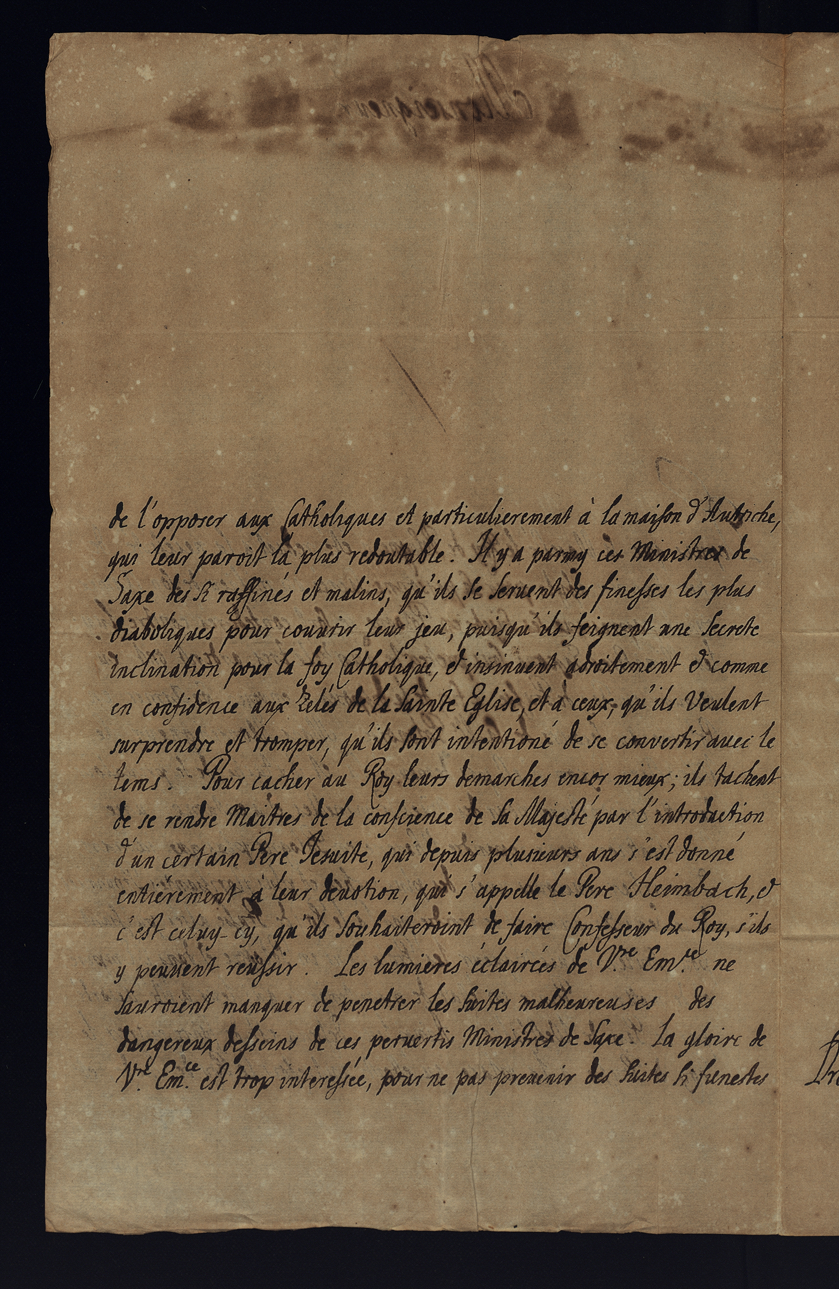 Monseigneur
de l'opposer aux Catholiques et particulierement à la maison d'Autriche,
qui leur paroit la plus redoutable. Il y a parmy ces Ministres de
Saxe des si raffinés et malins, qu'ils se servent des finesses les plus
diaboliques pour couvrir leur jeu, puisqu'ils feignent une secrete
inclination pour la foy Catholique, & insinuent adroitement & comme
en confidence aux Zelés de la Sainte Eglise, et à ceux, qu'ils veulent
surprendre et tromper, qu'ils sont intentioné de se convertir avec le
tems. Pour cacher au Roy leurs demarches encor mieux; ils tachent
de se rendre Maitres de la conscience de Sa Majesté par l'introduction
d'un certain Pere Jesuite, qui depuis plusieurs ans s'est donné
entiérement à leur devotion, qui s'appelle le Pere Heimbach, &
c'est celuy-cy, qu'ils souhaiteroint de faire Confesseur du Roy, s'ils
y peuvent reussir. Les lumieres éclaircés de V.re Em.ce ne
sauroient manquer de penetrer les suites malheureuses des
dangereux desseins de ces pervertis Ministres de Saxe. La gloire de
V.re Em.ce est trop interessée, pour ne pas prevenir des suites si funestes